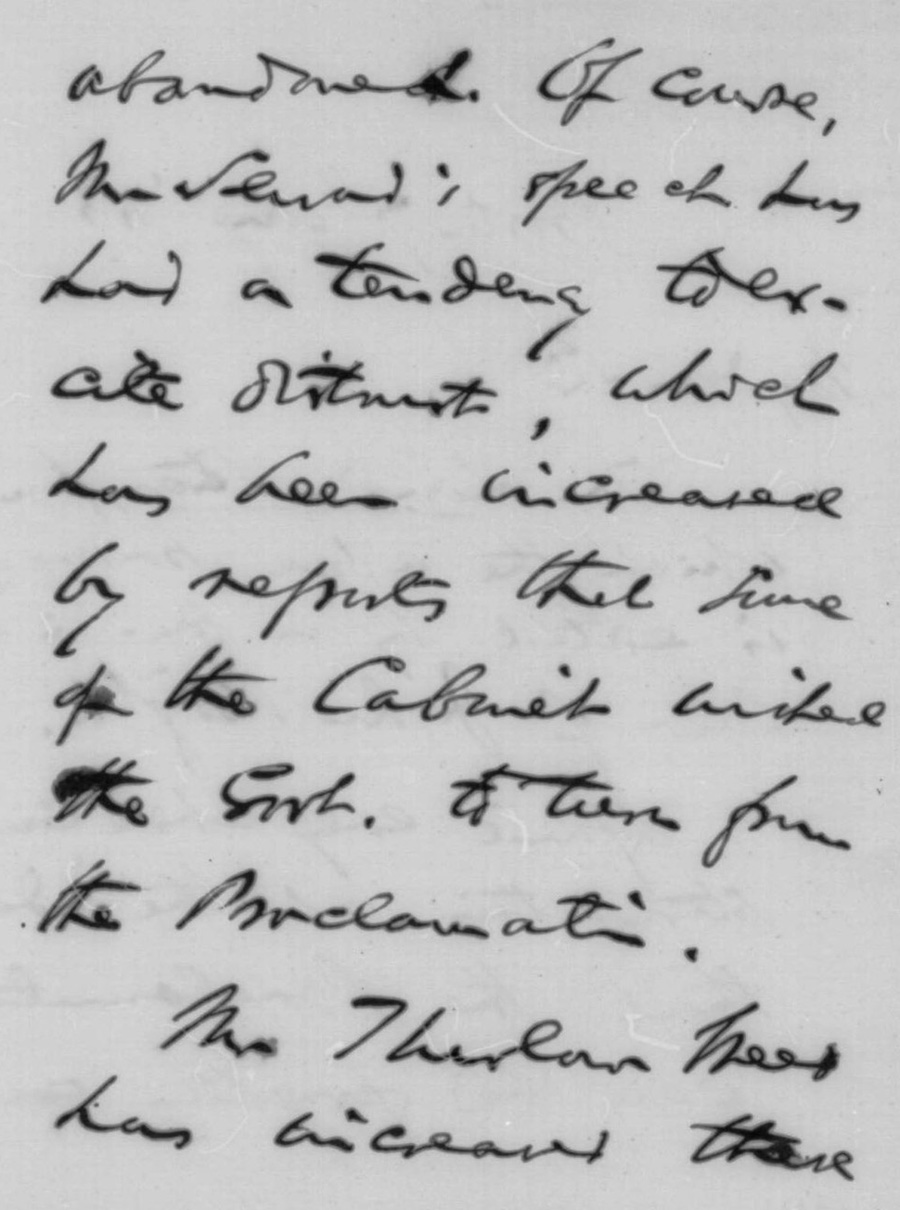 abandoned. Of course,
Mr Seward's speech has
had a tendency to ex-
cite distrust, which
has been increased
by reports that some
of the Cabinet wished
the Govt. to turn from
the Proclamation.
Mr Thurlow Weed
has increased these